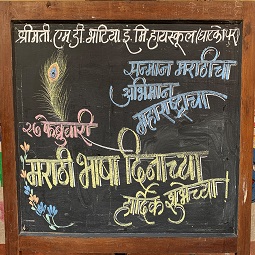 श्रीमती. एम.डी. भाटिया इं. मि. हायस्कूल (घाटकोपर)
सन्मान मराठीचा
अभिमान
महाराष्ट्राचा
२७ फेब्रुवारी
मराठी भाषा दिनाच्या
हार्दिक शुभेच्छा!